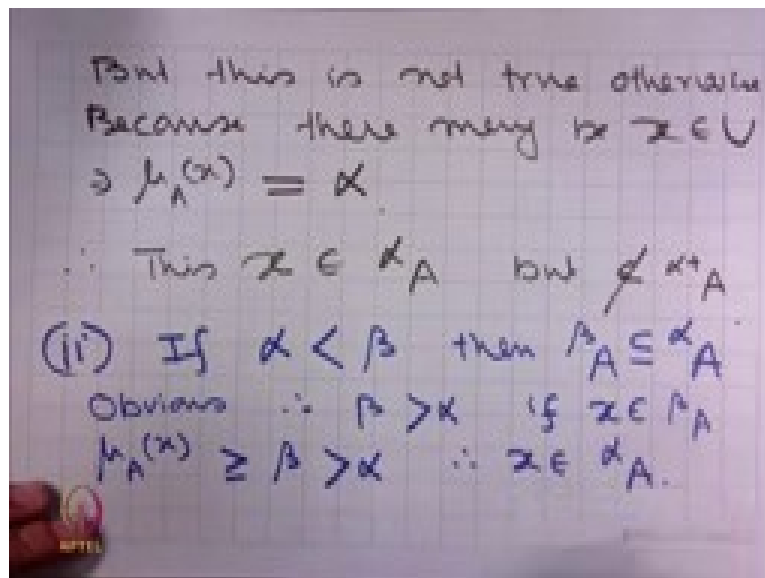 But this is not true otherwise
Because there may be x ∈ U
∋ μ_A(x) = α.
∴ This x ∈ ᵅA but ∉ ᵅ⁺A
(ii) If α < β then ᵝA ⊆ ᵅA
Obvious ∴ β > α if x ∈ ᵝA
μ_A(x) ≥ β > α ∴ x ∈ ᵅA.
NPTEL